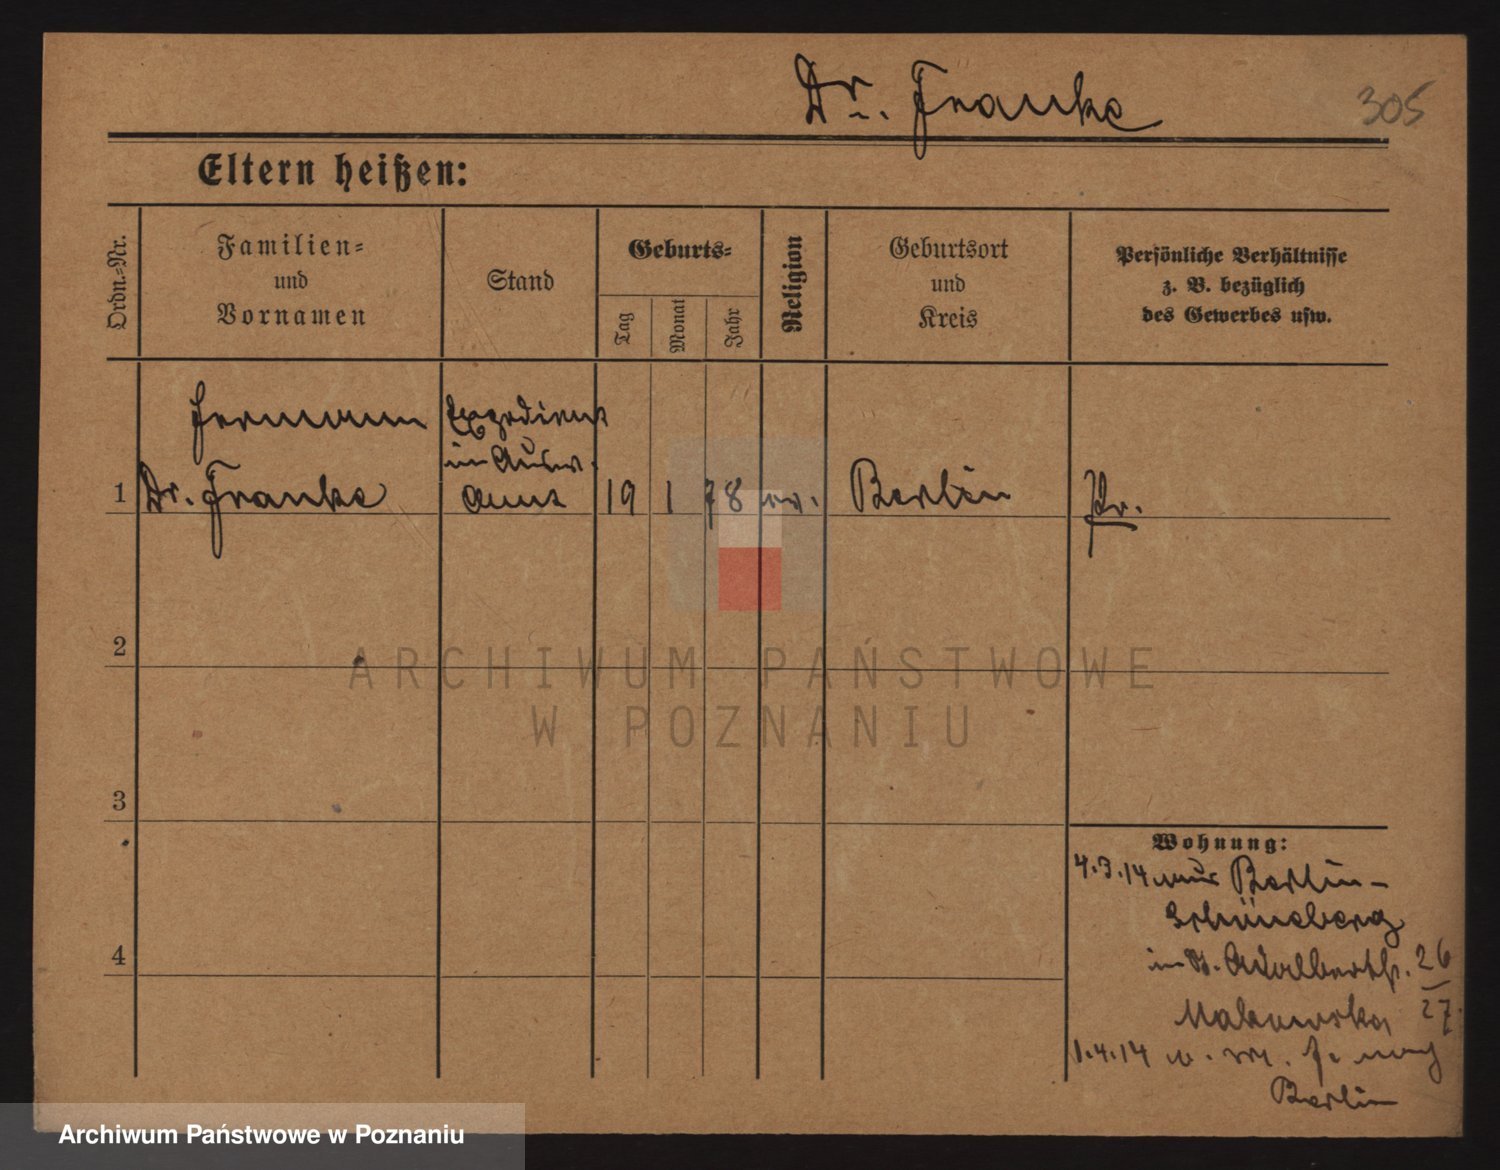 Dr. Franke
305
Eltern heißen:
Ordn.-Nr.
Familien-
und
Vornamen
Stand
Geburts-
Tag
Monat
Jahr
Religion
Geburtsort
und
Kreis
Persönliche Verhältnisse
z. B. bezüglich
des Gewerbes usw.
Hermann
Expedient
im Ausw.
1 Dr. Franke Amt 19 1 78 ev. Berlin Pr.
2
3
4
Wohnung:
4.3.14 aus Berlin-
Schöneberg
in St. Adalbertstr. 26/27.
Makowska
1.4.14 nach
Berlin
ARCHIWUM PAŃSTWOWE
W POZNANIU
Archiwum Państwowe w Poznaniu